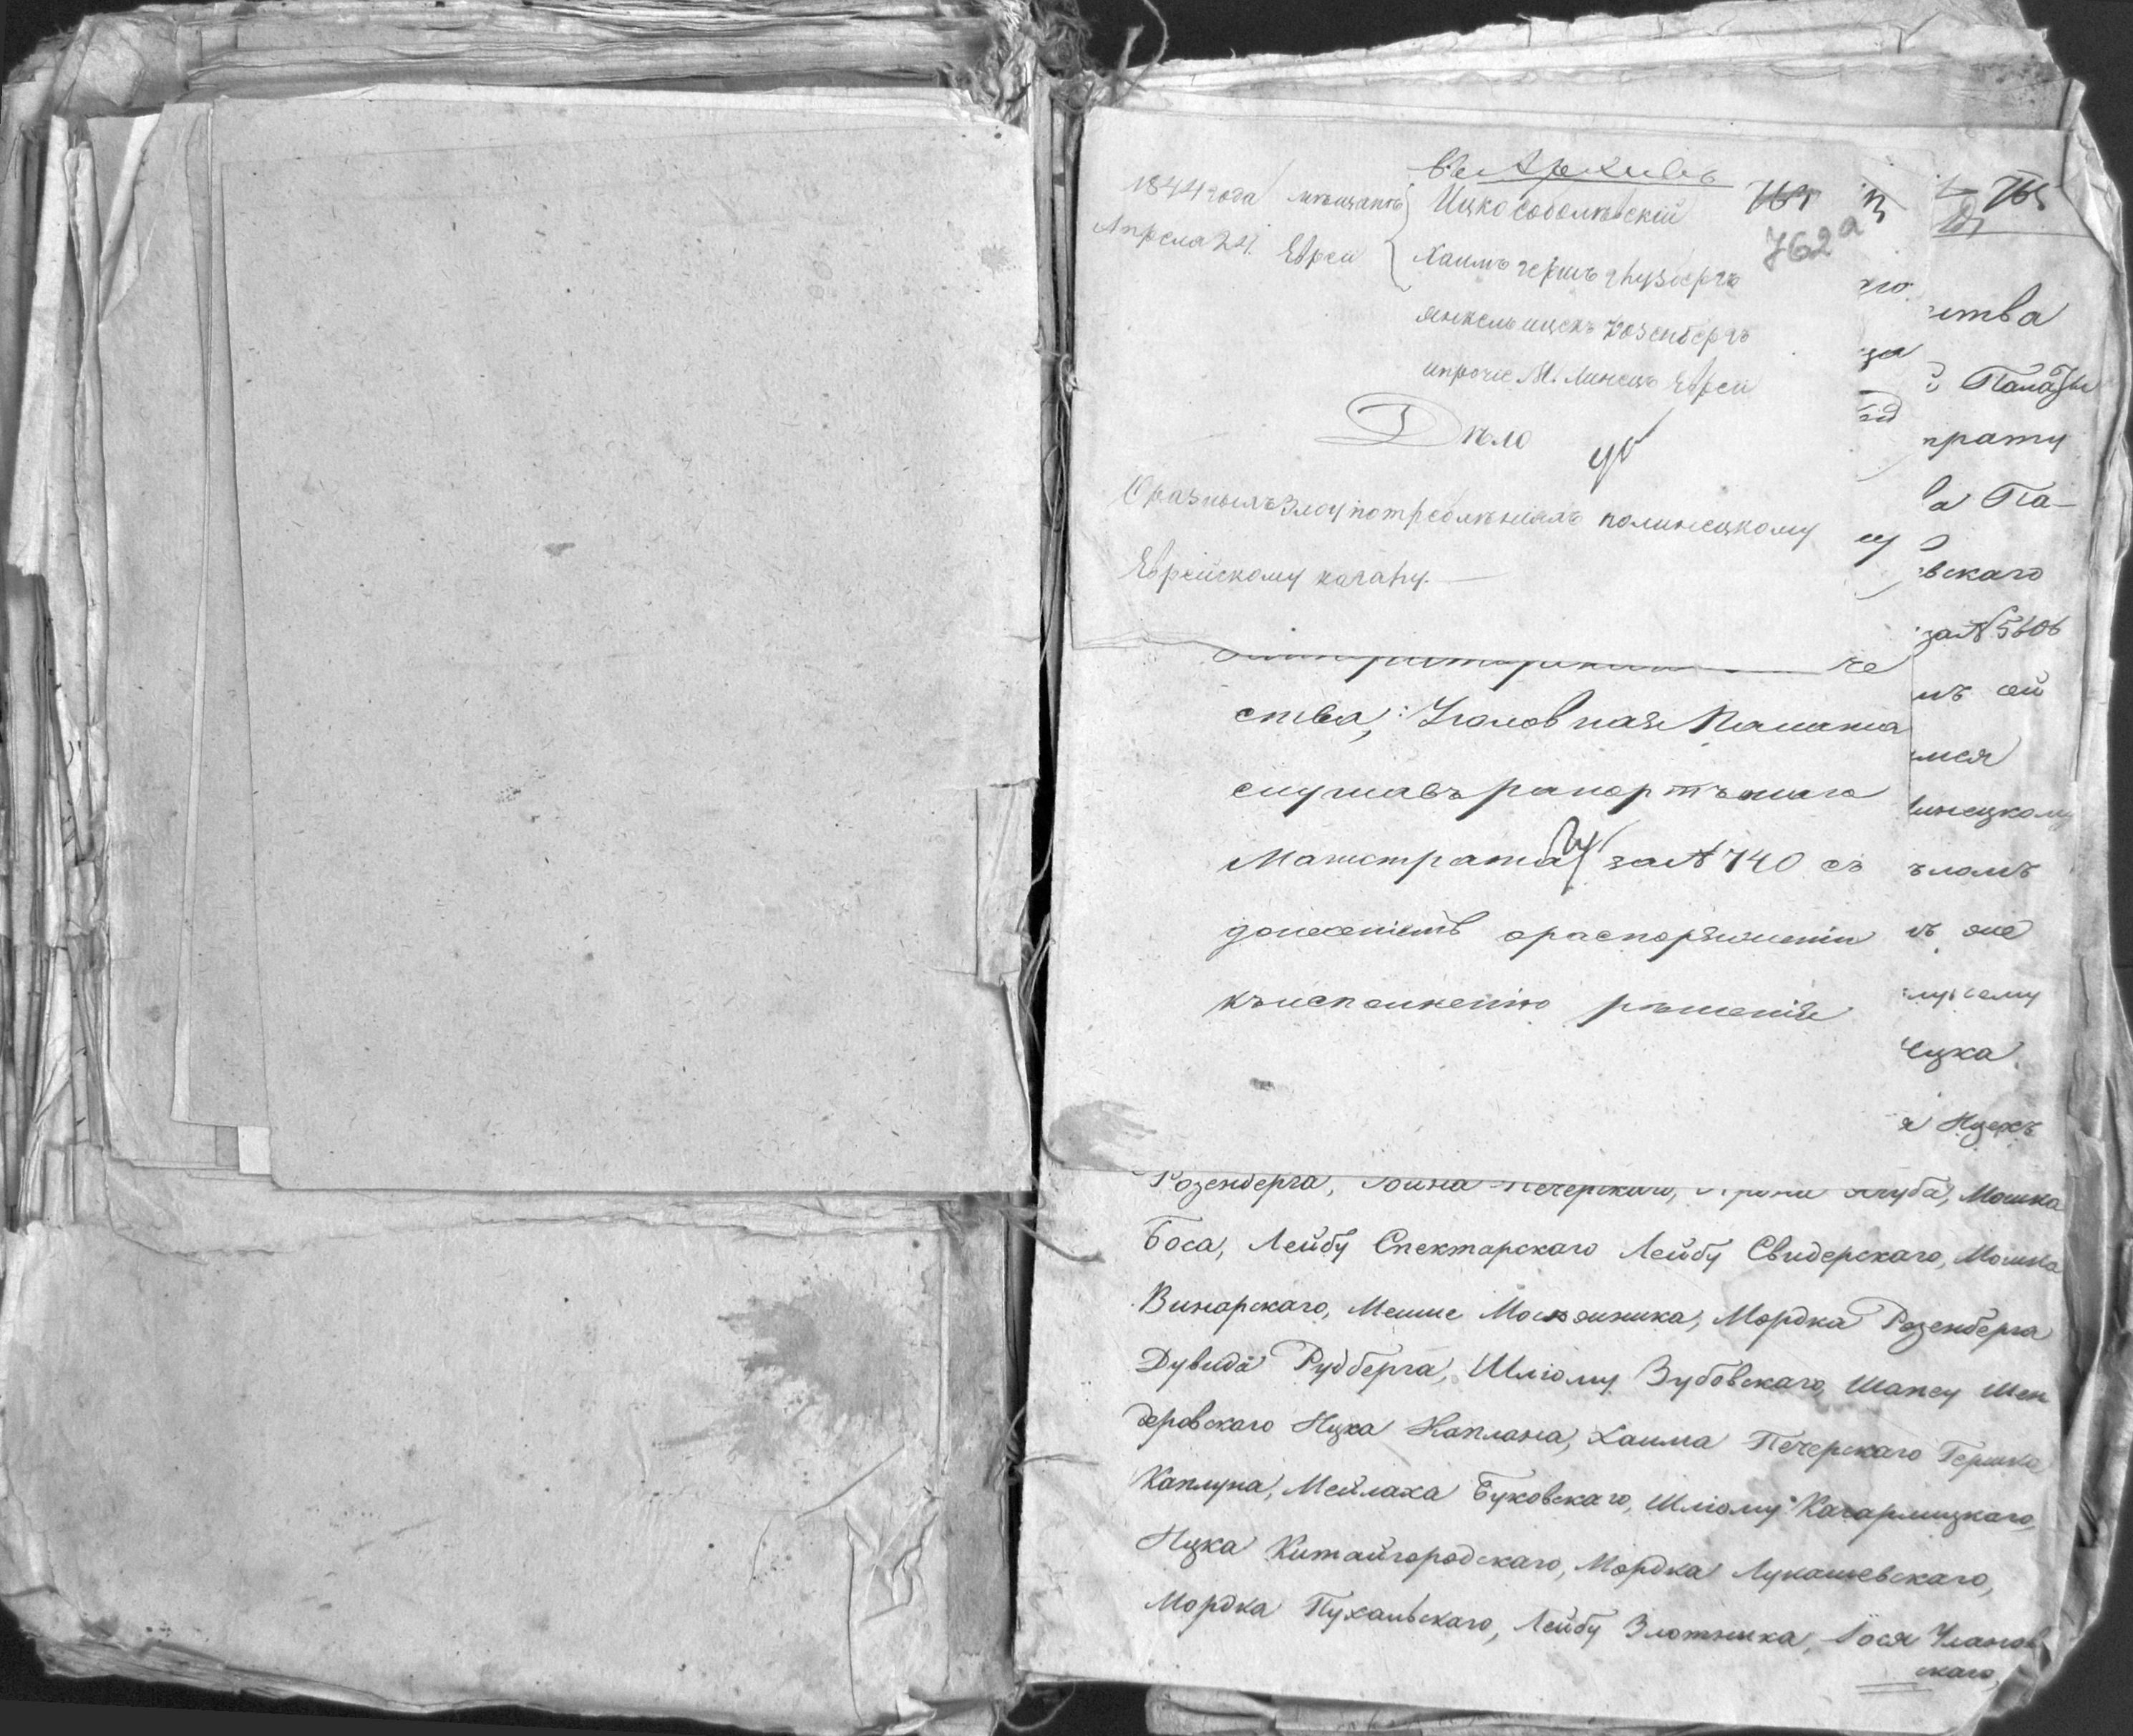 въ Архивъ
1844 года мѣщанѣ Ицко Соболѣвскій 765
762а
Апреля 24. Евреи Хаимъ гершъ
янкель ицекъ Розенбергъ
и прочіе М. Линецъ Евреи
Дѣло
О разнымъ Злоупотребленіямъ полинецкому
Еврейскому кагалу.
ства, Уголовная Палата
слушавъ рапортъ онаго
Магистрата за № 740 съ
донесеніемъ о распоряженіи
къ исполненію рѣшенія
765
ства
Палаты
трату
ва Па-
вскаго
за № 5606
мъ сей
инецкому
ѣломъ
ицка
а Ицекъ
Розенберга, Печерскаго, Мошка
Боса, Лейбу Спекторскаго Лейбу Свидерскаго, Мошка
Винарскаго, Мордка Розенберга
Дувида Рудберга, Шліому Зубовскаго, Шапсу Шен
деровскаго Ицка Каплана, Хаима Печерскаго Гершка
Каплуна, Мейлаха Буковскаго, Шліому Кагарлицкаго,
Ицка Китайгородскаго, Мордка Лукашевскаго,
Мордка Пухальскаго, Лейбу Злотника, Іося Уланов
скаго,